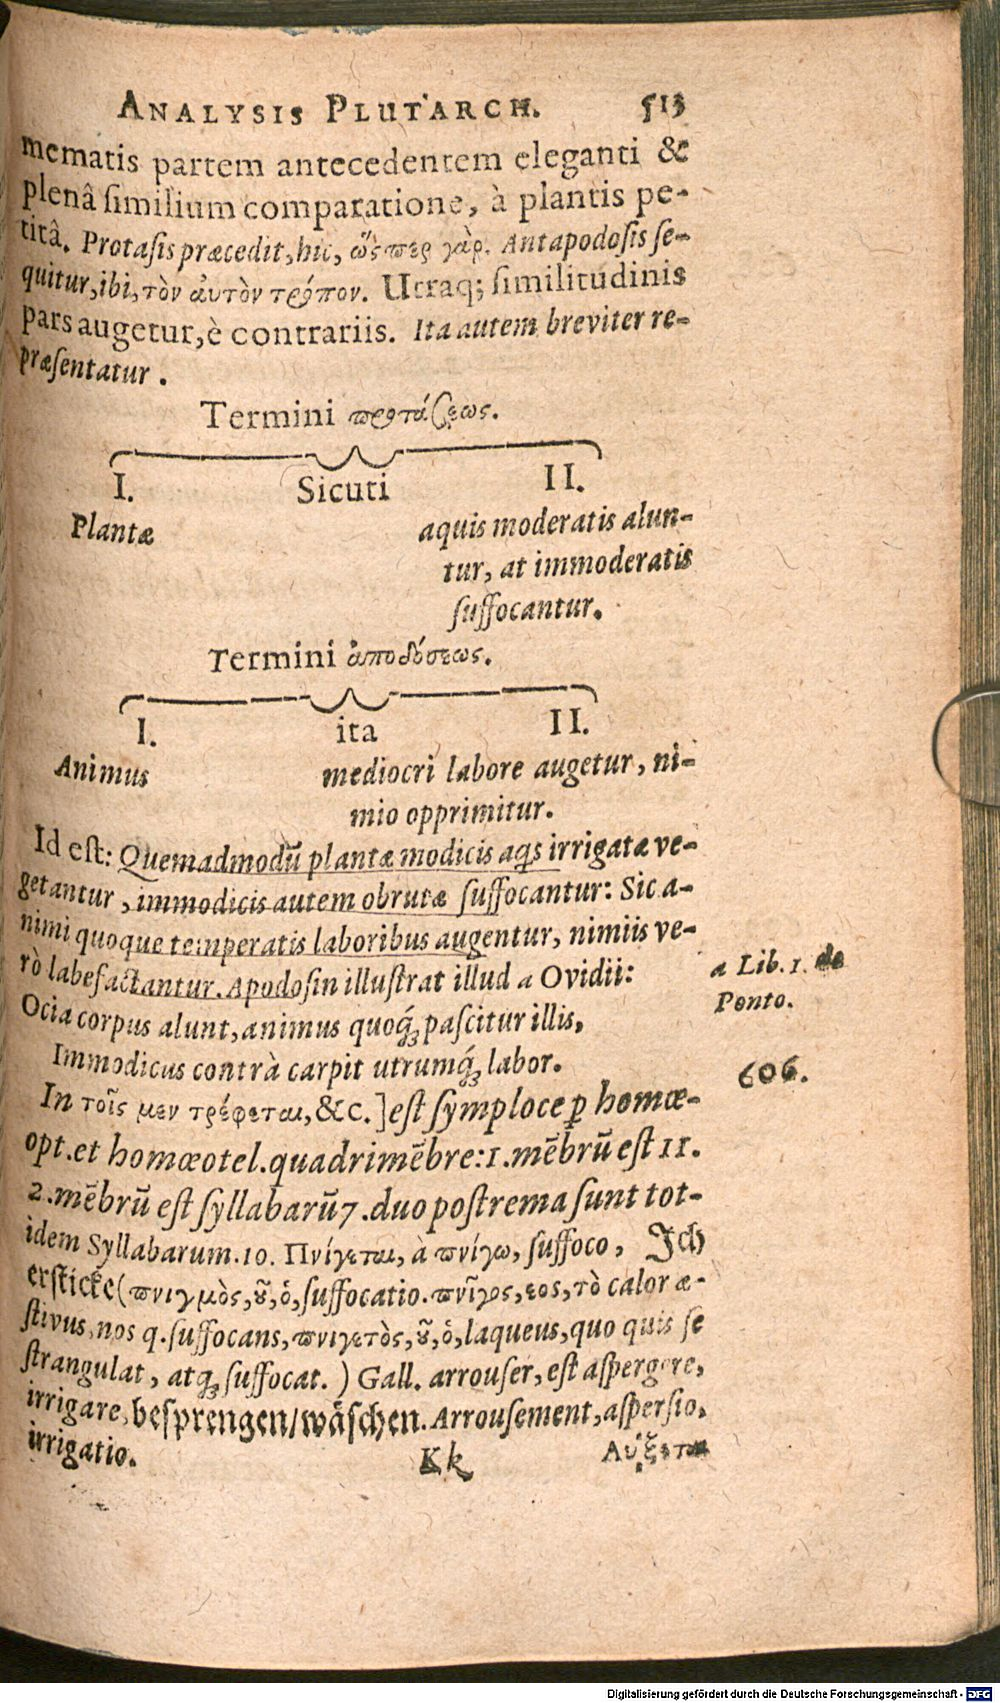 ANALYSIS PLUTARCH. 513
mematis partem antecedentem eleganti &
plenâ similium comparatione, à plantis pe-
titâ. Protasis præcedit, hic, ὥσπερ γὰρ. Antapodosis se-
quitur, ibi, τὸν αὐτὸν τρόπον. Utraq; similitudinis
pars augetur, è contrariis. Ita autem breviter re-
præsentatur.
Termini προτάσεως.
I. Sicuti II.
Plantæ aquis moderatis alun-
tur, at immoderatis
suffocantur.
Termini ἀποδόσεως.
I. ita II.
Animus mediocri labore augetur, ni-
mio opprimitur.
Id est: Quemadmodū plantæ modicis aqs irrigatæ ve-
getantur, immodicis autem obrutæ suffocantur: Sic a-
nimi quoque temperatis laboribus augentur, nimiis ve-
rò labefactantur. Apodosin illustrat illud a Ovidii:
a Lib. 1. de
Ponto.
Ocia corpus alunt, animus quoq́; pascitur illis,
Immodicus contrà carpit utrumq́; labor.
606.
In τοῖς μεν τρέφεται, &c.] est symploce ꝑ homœ-
opt. et homœotel. quadrimēbre: 1. mēbrū est 11.
2. mēbrū est syllabarū 7. duo postrema sunt tot-
idem Syllabarum. 10. Πνίγεται, à πνίγω, suffoco, Ich
ersticke (πνιγμὸς, ȣ͂, ὁ, suffocatio. πνῖγος, εος, τὸ calor æ-
stivus, nos q. suffocans, πνιγετὸς, ȣ͂, ὁ, laqueus, quo quis se
strangulat, atq; suffocat. ) Gall. arrouser, est aspergere,
irrigare, besprengen/wäschen. Arrousement, aspersio,
irrigatio.
Kk Αὔξεται